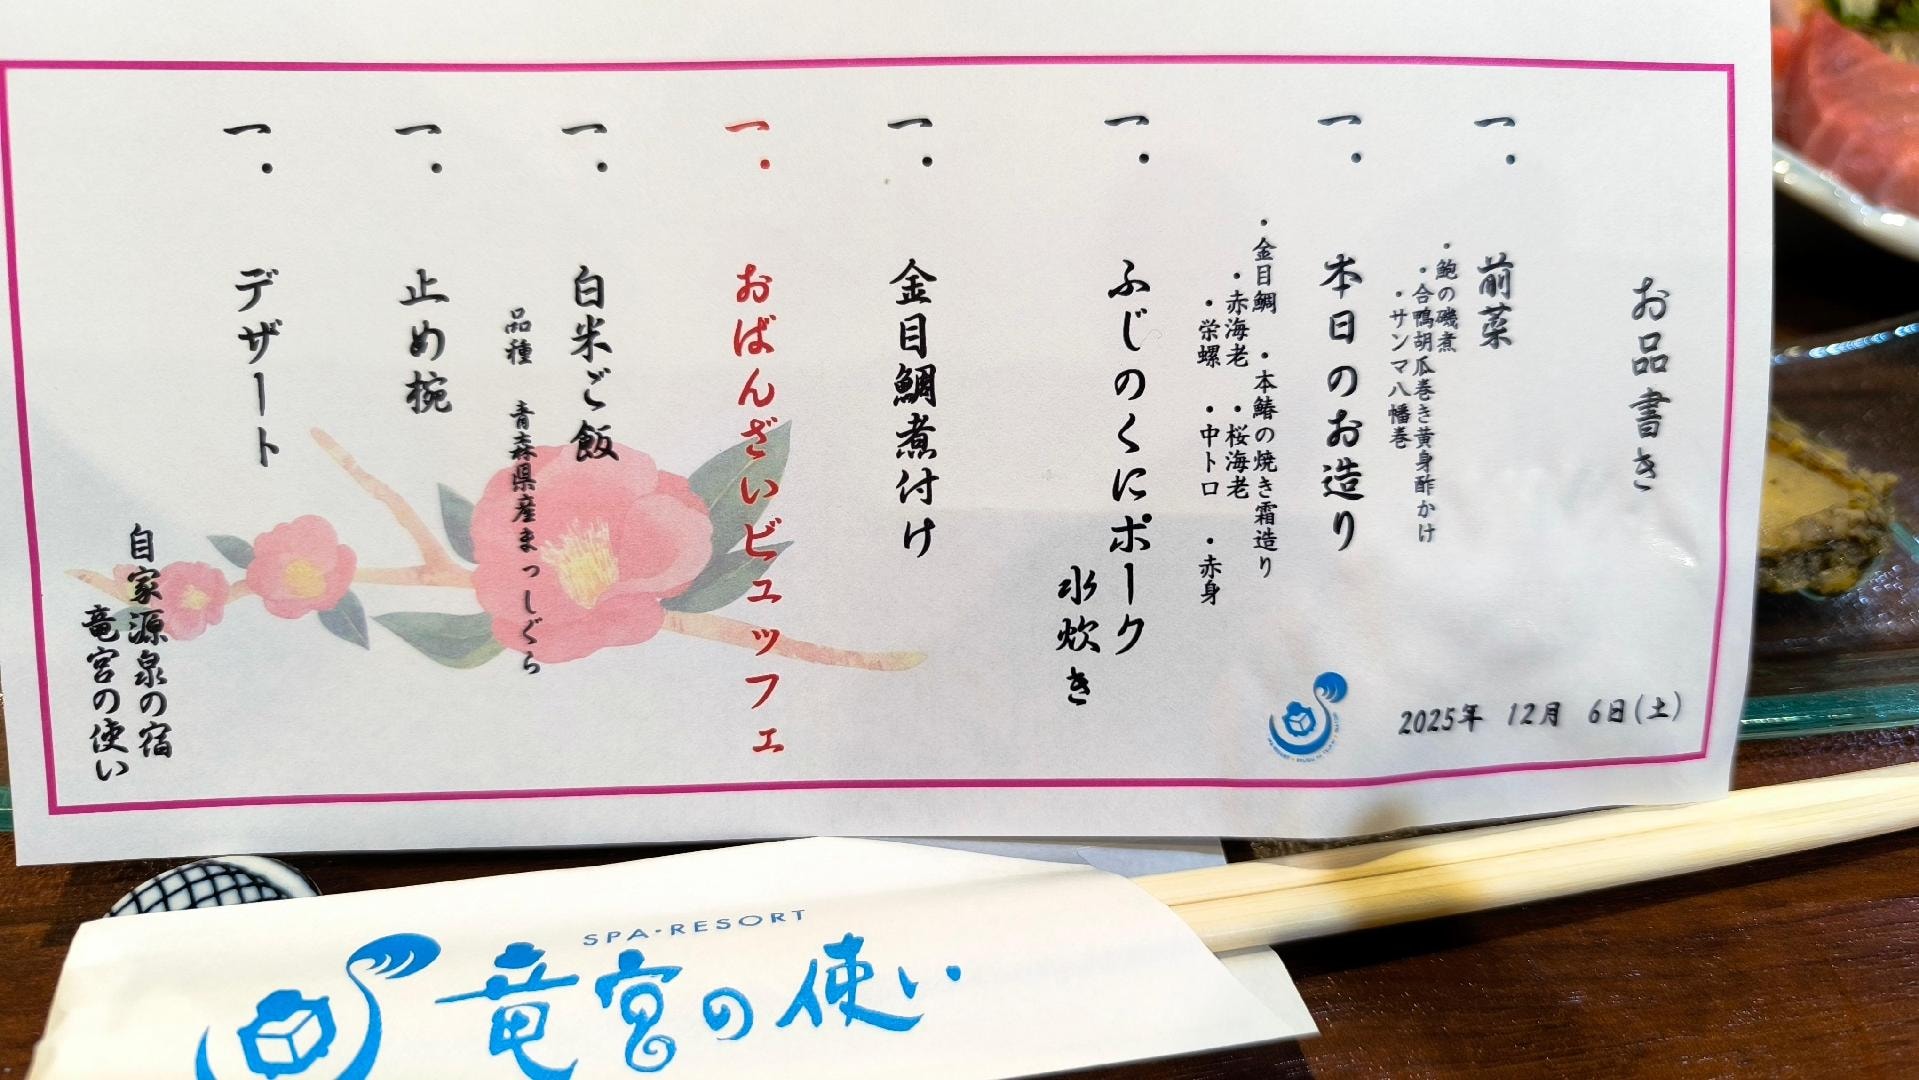 お品書き
2025年 12月 6日(土)
一. 前菜
・鮑の磯煮
・合鴨胡瓜巻き黄身酢かけ
・サンマ八幡巻
一. 本日のお造り
・金目鯛 ・本鰆の焼き霜造り
・赤海老 ・桜海老
・栄螺 ・中トロ ・赤身
一. ふじのくにポーク
水炊き
一. 金目鯛煮付け
一. おばんざいビュッフェ
一. 白米ご飯
品種 青森県産まっしぐら
一. 止め椀
一. デザート
自家源泉の宿
竜宮の使い
SPA・RESORT
竜宮の使い